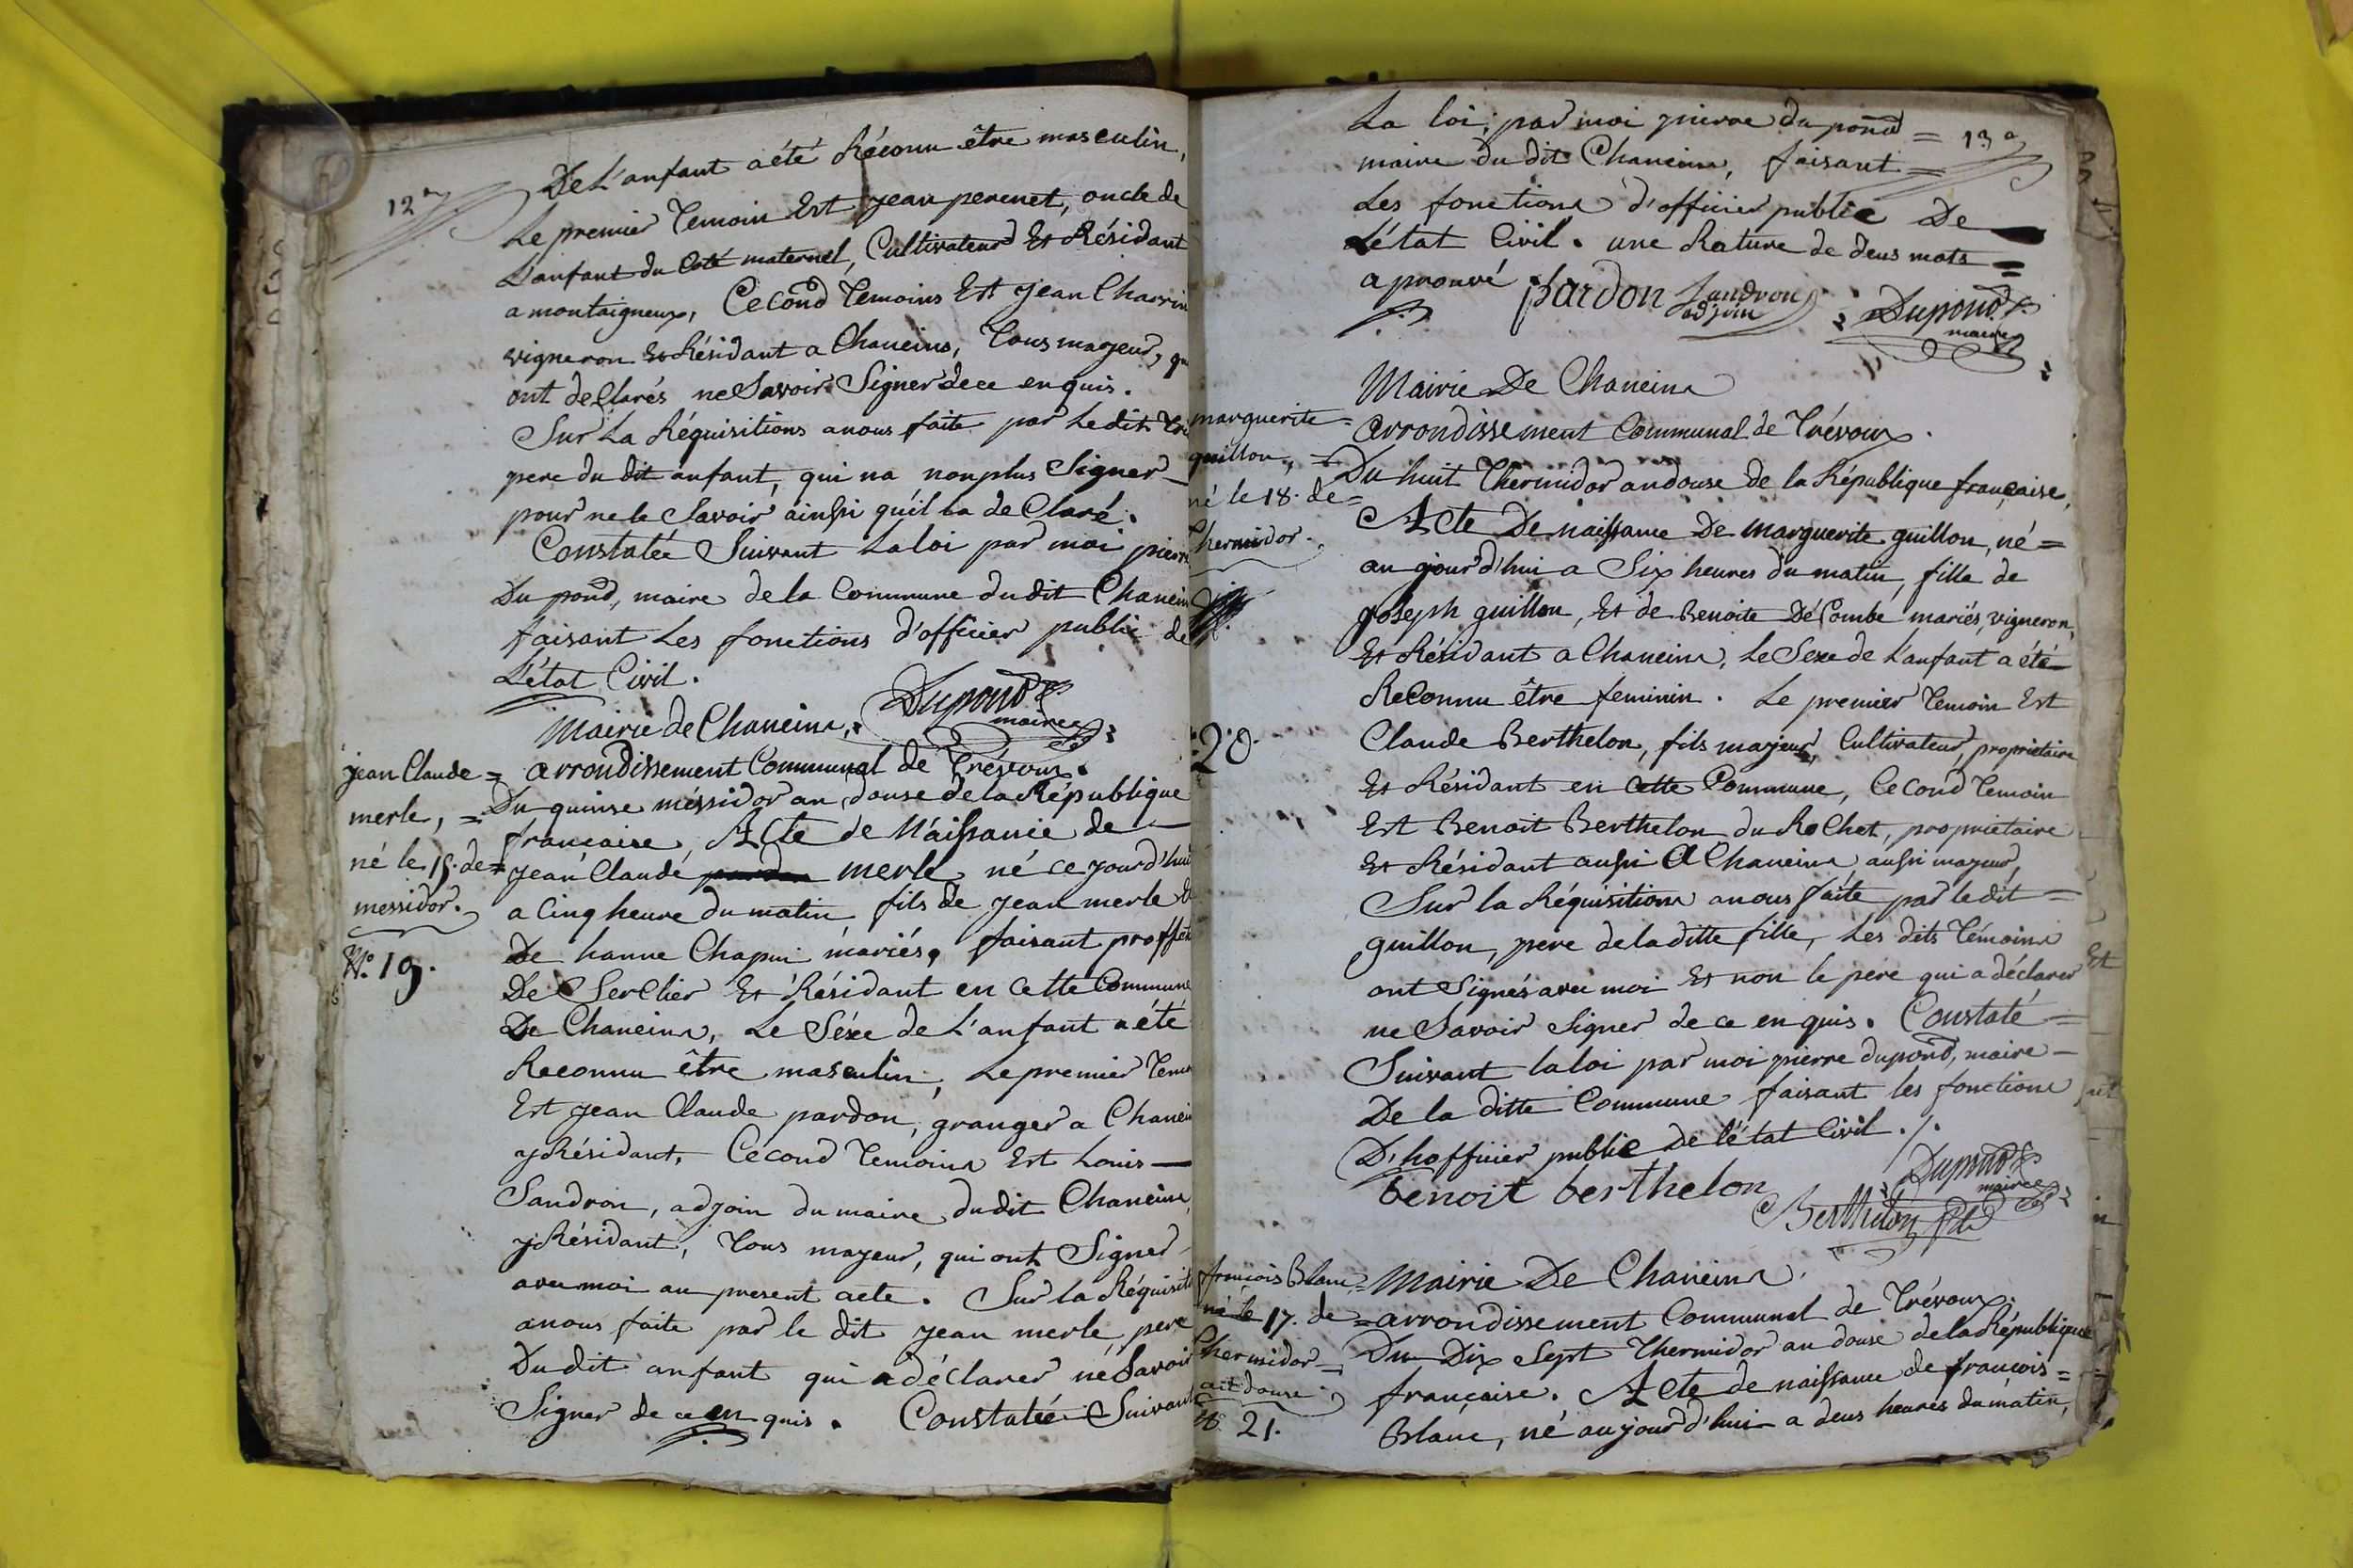 12e
De L'anfant a été Réconu être masculin,
Le premier Temoin Est jean perenet, oncle de
L'anfant du Coté maternel, Cultivateur Et Résidant
a montaigneux, Cecond Temoins Est jean Charvin
vigneron Et Résidant a Chaneins, Tous majeur, qu
ont deClarés ne Savoir Signer de ce enquis.
Sur La Réquisitions a nous faite par Ledit
pere du dit anfant, qui na nonplus Signer
pour ne le Savoir ainsi qu'il la de Claré.
Constatée Suivant La loi par moi pierre
Du pond, maire de la Commune dudit Chanein
faisant Les fonctions d'officier public de
L'état Civil.
Dupond
maire
Mairie de Chaneins,
arrondissement Communal de Trévoux.
jean Claude =
merle, =
né le 15. de =
messidor.
No. 19.
Du quinse méssidor an douse de la République
française, Acte de Naissance de
jean Claude merle né ce jourd'hui
a Cinq heure du matin fils de jean merle &
De hanne Chapui mariés, faisant proffes
De SerClier Et Résidant en Cette Commune
De Chaneins, Le Séxe de L'anfant a été
Reconnu être masculin, Le premier Temoin
Est jean Claude pardon, granger a Chanein
y Résidant, Cecond Temoins Est Louis
Sandron, adjoin du maire dudit Chaneins,
y Résidant, Tous majeur, qui ont Signer
avec moi au present acte. Sur la Réquisiti
a nous faite par le dit jean merle, pere
Du dit anfant qui a déclarer ne Savoir
Signer de ce en quis. Constatée Suivant
13e
La loi, par moi pierre du pond =
maire du dit Chaneins, faisant =
Les fonctions d'officier public De
L'état Civil. une Rature de deus mots =
aprouvé pardon Sandron
adjoin
Dupond
maire
Mairie De Chaneins
arrondissement Communal de Trévoux.
marguerite =
guillon, =
né le 18. de =
Thermidor.
20.
Du huit Thermidor an douse de la République française,
Acte De naissance De marguerite guillon, né =
au jourd'hui a Six heures du matin, fille de
joseph guillon, Et de Benoite DéCombe mariés, vigneron,
Et Résidant a Chaneins, Le Sexe de L'anfant a été
ReConnu être feminin. Le premier Temoin Est
Claude Berthelon, fils majeur, Cultivateur, propriétaire
Et Résidant en Cette Commune, Cecond Temoin
Est Benoit Berthelon du RoChet, propriétaire
Et Résidant aussi a Chaneins, aussi majeur,
Sur la Réquisitions a nous faite par ledit =
guillon, pere de la ditte fille, Les dits Témoins
ont Signés avec moi Et non le pere qui a déclarer
ne Savoir Signer de ce en quis. Constaté =
Suivant la loi par moi pierre dupond, maire
De la ditte Commune faisant les fonctions
D'hofficier public De l'état Civil ./.
benoit berthelon
Dupond
maire
Berthelon fils
Mairie De Chaneins,
arrondissement Communal de Trévoux.
françois Blanc =
né le 17. de =
Thermidor =
an douse
No. 21.
Du Dix Sept Thermidor an douse de la République
française. Acte de naissance de françois =
Blanc, né aujourd'hui a deus heures du matin,